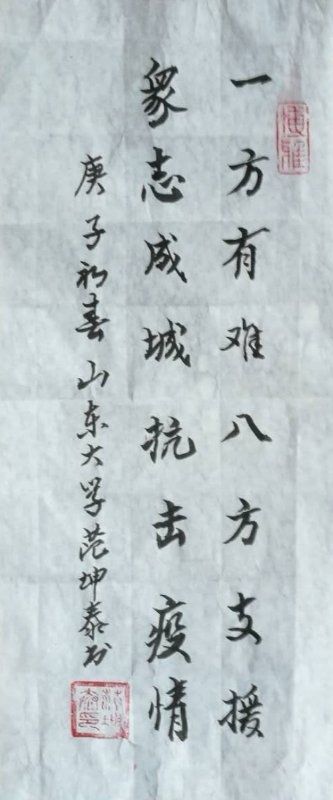 一方有难八方支援
眾志成城抗击疫情
庚子初春山东大学范坤泰书